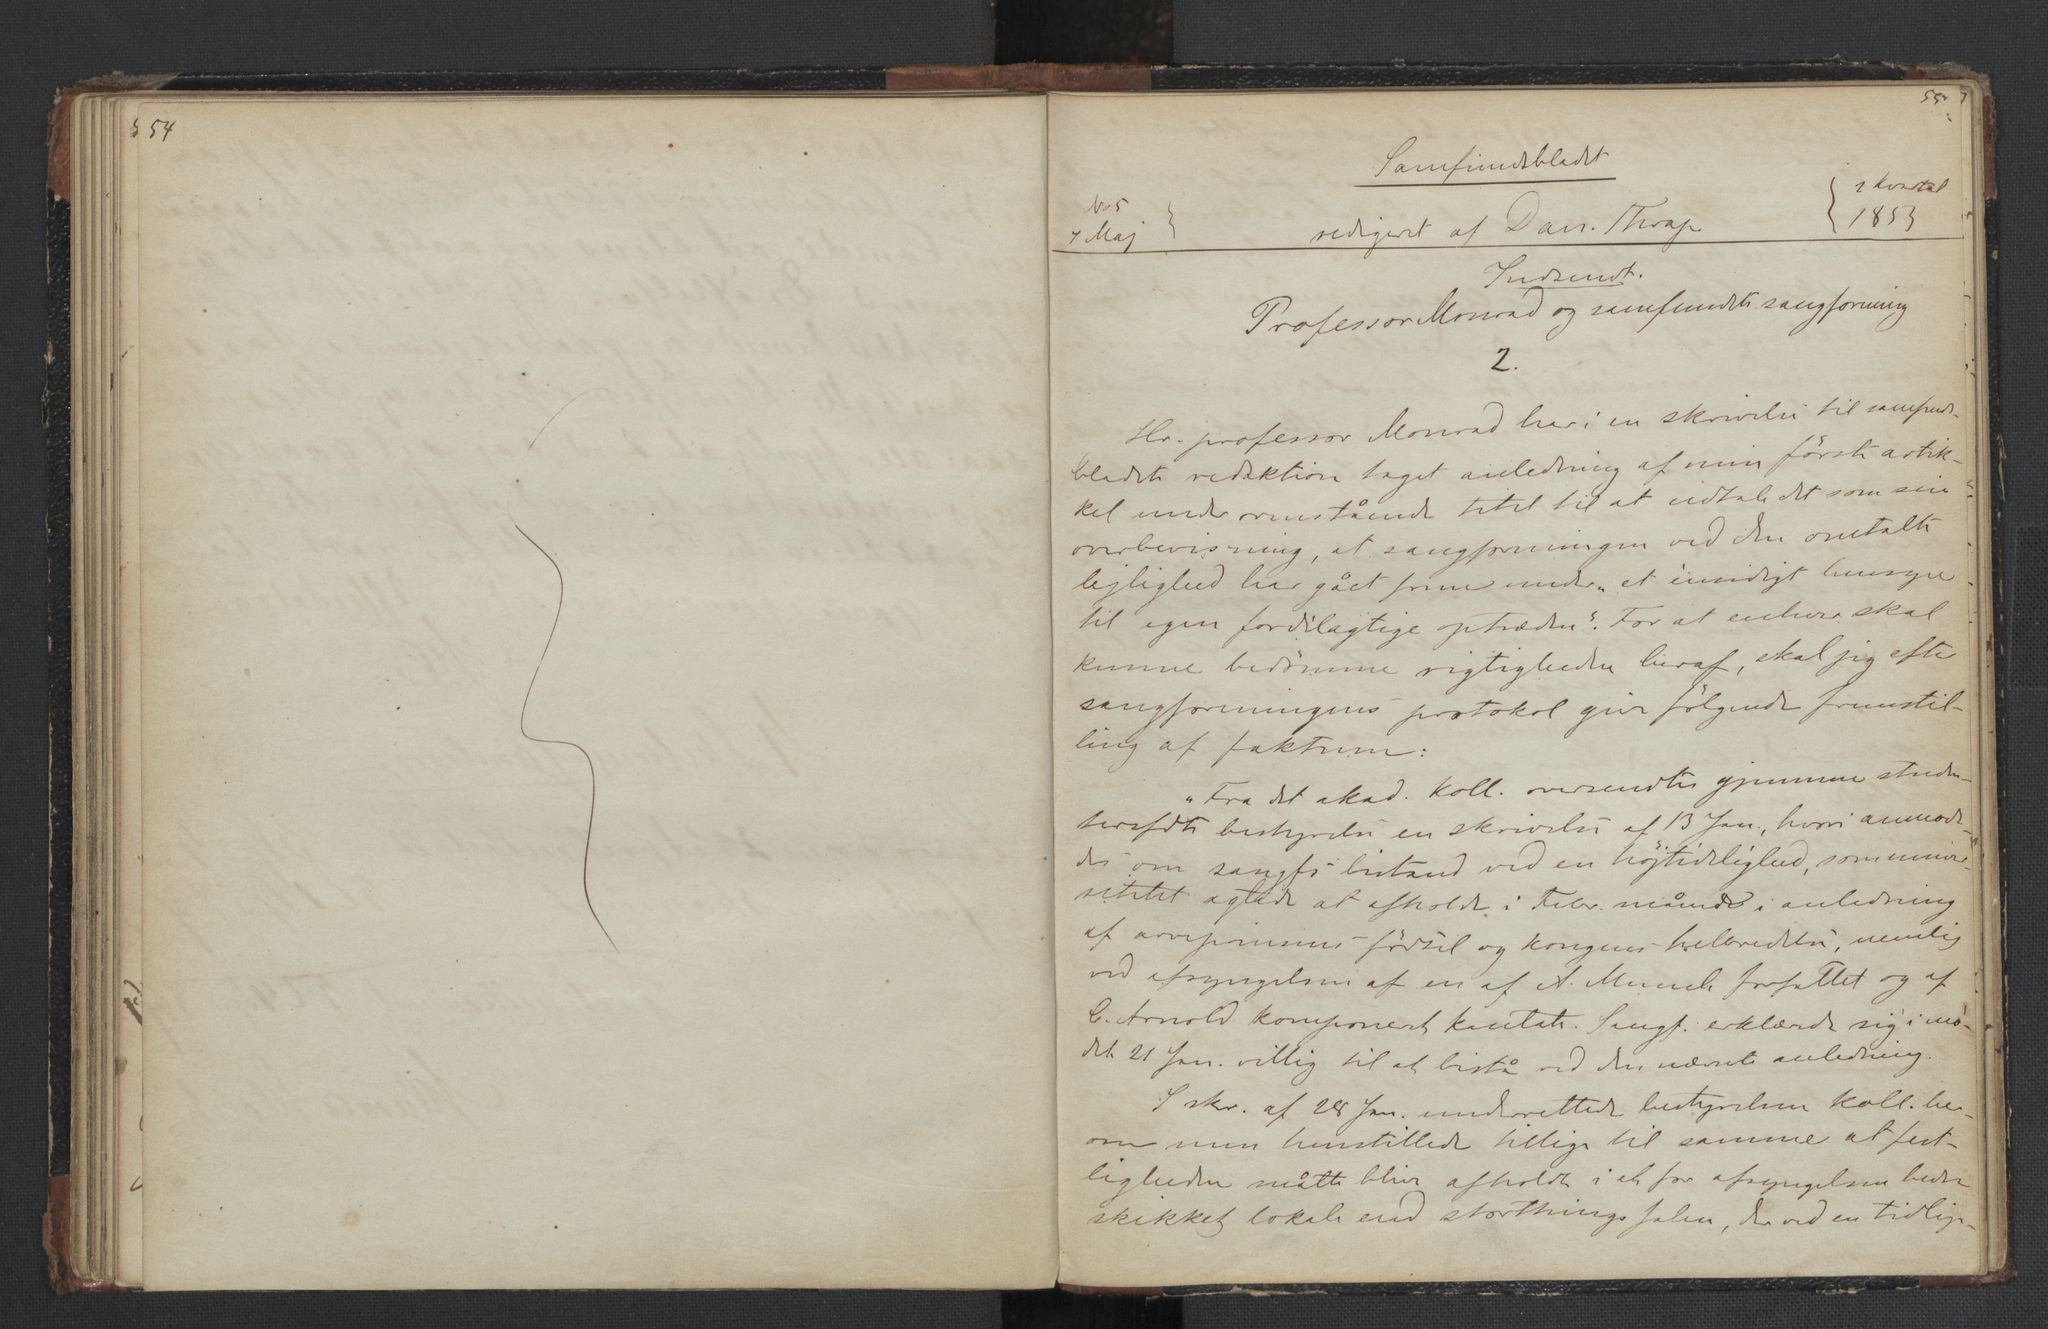 54
55
Samfundsbladet
No 5
7 Maj
redigeret af Dan. Thrap
2 kvartal
1853
Indsendt.
Professor Monrad og samfundets sangforening
2.
Hr. professor Monrad har i en skrivelse til samfunds-
bladets redaktion taget anledning af min förste artik-
kel under ovenstående titel til at udtale det som sin
overbevisning, at sangforeningen ved den omtalte
lejlighed har gået frem under „et ensidigt hensyn
til egen fordelagtige optræden“. For at enhver skal
kunne bedömme rigtigheden heraf, skal jeg efter
sangforeningens protokol give fölgende fremstil-
ling af faktum:
„Fra det akad. koll. oversendtes gjennem studen-
tersfdts bestyrelse en skrivelse af 13 Jan., hvori anmode-
des om sangfs bistand ved en höjtidelighed, som univer-
sitetet agtede at afholde i Febr. måned i anledning
af arveprinsens födsel og kongens helbredelse, nemlig
ved afsyngelsen af en af A. Munch forfattet og af
C. Arnold komponeret kantate. Sangf. erklærede sig i mö-
det 21 Jan. villig til at bistå ved den nævnte anledning.
I skr. af 28 Jan. underrettede bestyrelsen koll. her-
om men henstillede tillige til samme at fest-
ligheden måtte blive afholdt i et for afsyngelsen bedre
skikket lokale end storthingssalen, der ved en tidlig-